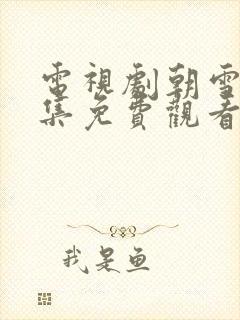 電視劇朝雪
集免費觀看
我是鱼